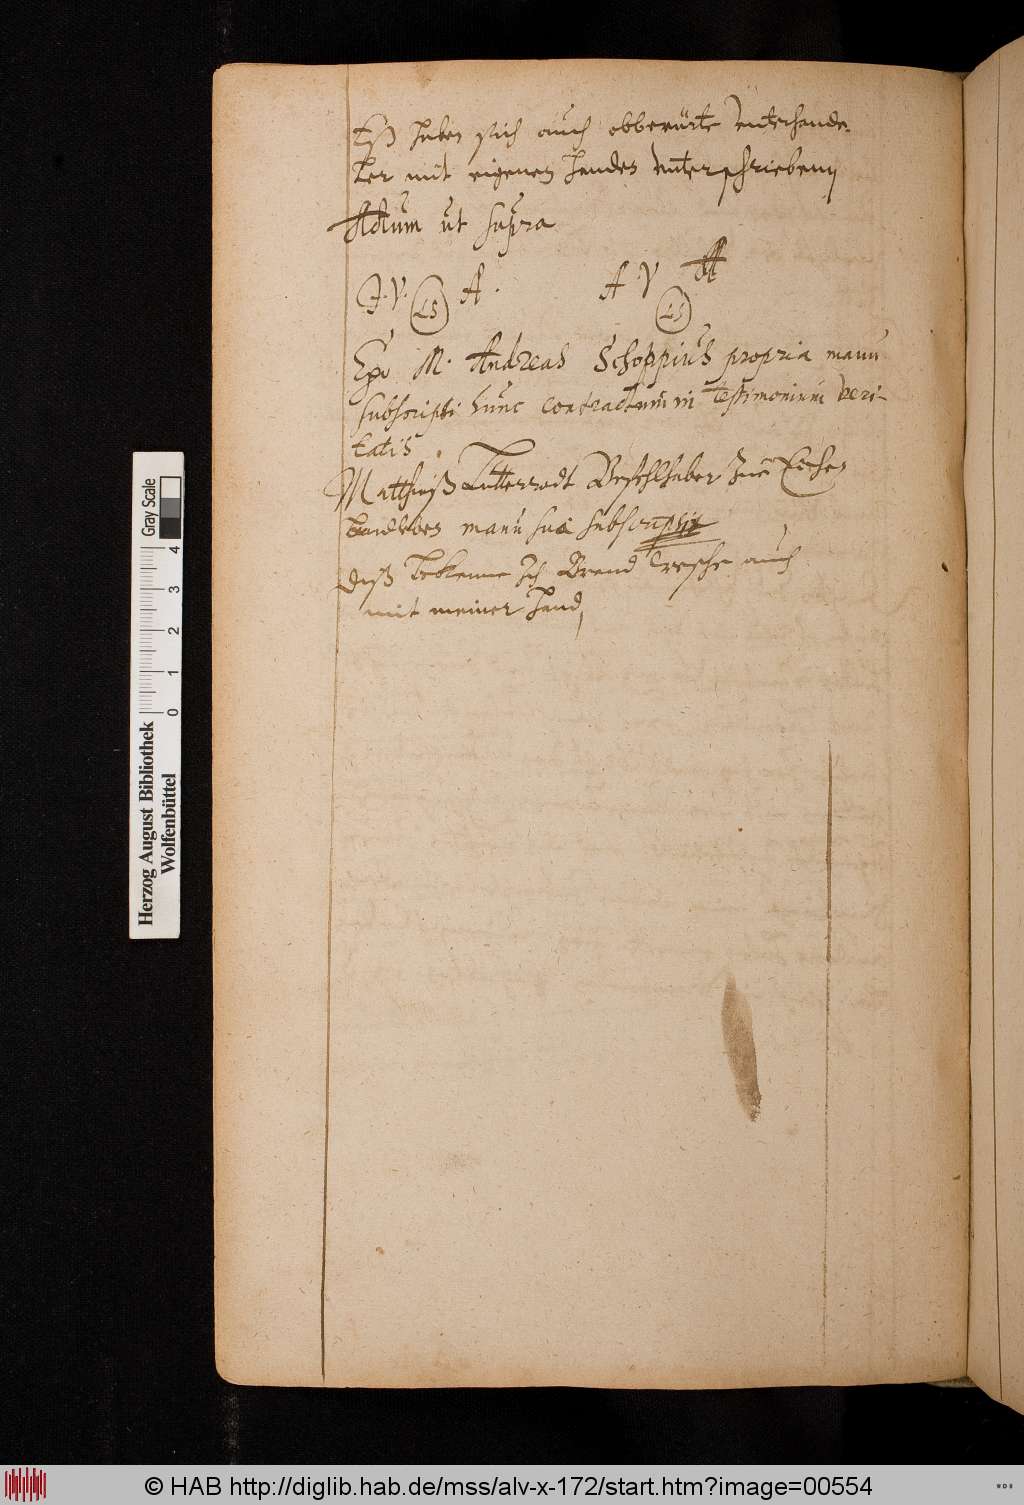 Eß haben sich auch obberürte unterhande-
ler mit eigenen handen unterschrieben
Actum ut supra
J. V. LS A.
A V LS A
Ego M. Andreas Schoppius propria manu
subscripsi hunc contractum in testimonium veri-
tatis.
Matthiaß Lutterrodt Befehlhaber zue
manu sua subscripsit
Diß bekenne Ich Brand auch
mit meiner hand,
Herzog August Bibliothek
Wolfenbüttel
0 1 2 3 4
Gray Scale
© HAB http://diglib.hab.de/mss/alv-x-172/start.htm?image=00554